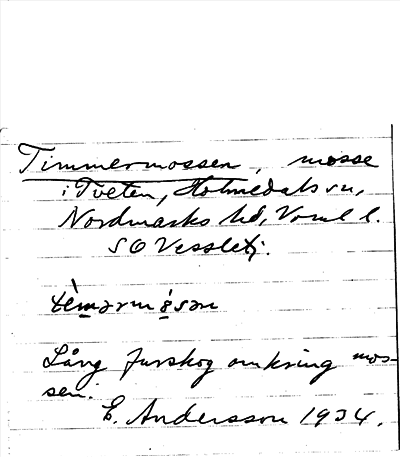 Timmermossen, mosse
i Tveten, Holmedals sn,
Nordmarks hd, Vrml l.
SO Vessletj.
tèmərmǫsən
Lång furskog omkring mos-
sen.
E. Andersson 1934.